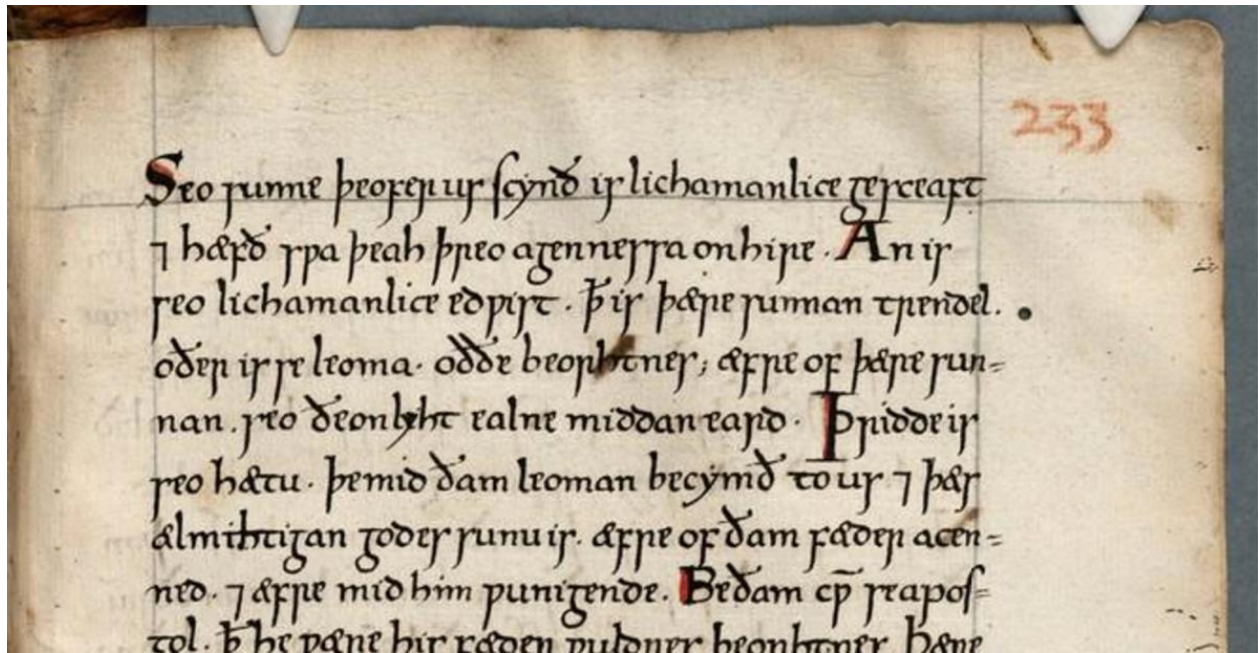 233
Seo sunne þeofer us scynð is lichamanlice gesceaft
⁊ hæfð swa þeah þreo agennessa onhire . An is
seo lichamanlice edwist . ꝥ is þære sunnan trendel .
oðer is se leoma · oððe beorhtnes ; æfre of þære sun-
nan . seo ðeonlyht ealne middaneard · Þridde is
seo hætu · þemid ðam leoman becymð to us ⁊ þæs
ælmihtigan godes sunu is . æfre of ðam fæder acen-
ned . ⁊ æfre mid him wunigende . Beðam cƿ̄ seapos-
tol . ꝥ he wære his fæder wuldres beorhtnes